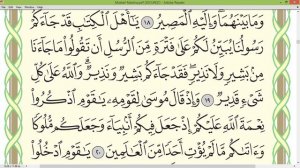 Mushaf Madinah.pdf (SECURED) - Adobe Reader
وَمَا بَيْنَهُمَا وَإِلَيْهِ ٱلْمَصِيرُ ١٨ يَٰٓأَهْلَ ٱلْكِتَٰبِ قَدْ جَآءَكُمْ
رَسُولُنَا يُبَيِّنُ لَكُمْ عَلَىٰ فَتْرَةٍ مِّنَ ٱلرُّسُلِ أَن تَقُولُوا۟ مَا جَآءَنَا
مِنۢ بَشِيرٍ وَلَا نَذِيرٍ فَقَدْ جَآءَكُم بَشِيرٌ وَنَذِيرٌ وَٱللَّهُ عَلَىٰ كُلِّ
شَىْءٍ قَدِيرٌ ١٩ وَإِذْ قَالَ مُوسَىٰ لِقَوْمِهِۦ يَٰقَوْمِ ٱذْكُرُوا۟
نِعْمَةَ ٱللَّهِ عَلَيْكُمْ إِذْ جَعَلَ فِيكُمْ أَنۢبِيَآءَ وَجَعَلَكُم مُّلُوكًا
وَءَاتَىٰكُم مَّا لَمْ يُؤْتِ أَحَدًا مِّنَ ٱلْعَٰلَمِينَ ٢٠ يَٰقَوْمِ ٱدْخُلُوا۟